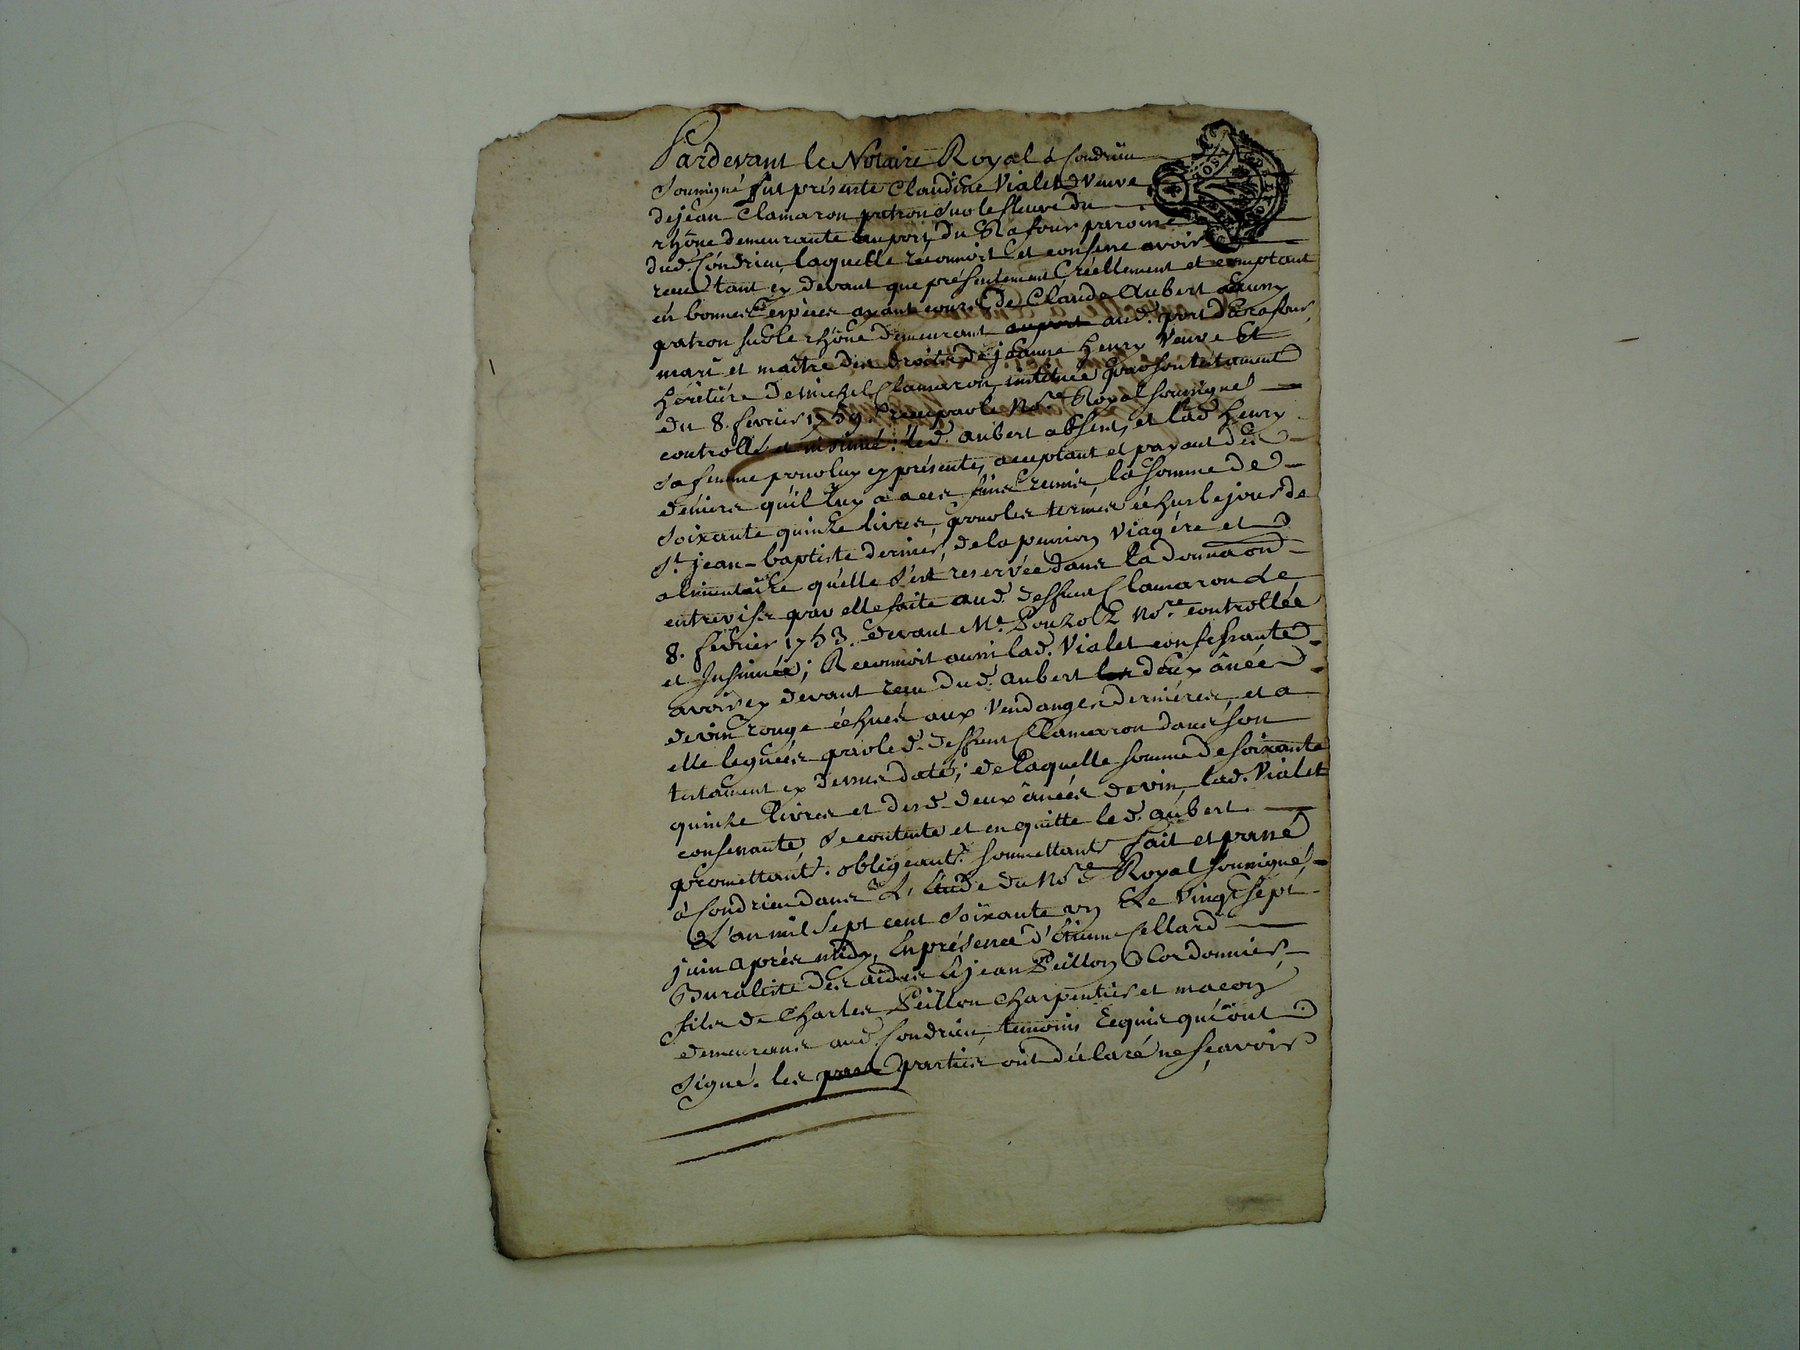 Pardevant le Notaire Royal à Condrieu
soussigné fut présente Claudine Vialet veuve
de jean Clamaron patron sur le fleuve du
rhône demeurante au port du Rafour paroisse
dud. Condrieu, laquelle reconnoit et confesse avoir
receu tant cy devant que présentement réellement et comptant
en bonnes espèces ayant cours de Claude Aubert
patron sur le rhône demeurant aud. port du rafour,
mari et maître des droits de jeanne henry veuve Et
héritière de michel Clamaron, instituée par son testament
du 8. fevrier 1759. receu par le No.re Royal soussigné
controllé et insinué; led. aubert absent, et lad. henry
sa femme pour luy cy présente, acceptant et payant des
deniers qu'il luy a à ces fins remis, la somme de
soixante quinze livres, pour les termes échus le jour de
St. jean-baptiste dernier, de la pension viagère et
alimentaire qu'elle s'est reservée dans la donnaon
entrevifs par elle faite aud. deffunt Clamaron Le
8. février 1753. devant Me. Pouzolz No.re controllée
et Insinuée; Reconnoit aussi lad. Vialet confessante
avoir cy devant reçu dud. aubert deux ânées
de vin rouge échues aux Vendanges dernières, et a
elle leguées par led. deffunt Clamaron dans son
testament cy dessus daté; de laquelle somme de soixante
quinze livres et desd. deux ânées de vin, lad. Vialet
confessante, se contente et en quitte led. aubert.
promettants. obligeants. soumettants fait et passé
à Condrieu dans L'étude du No.re Royal soussigné,
L'an mil sept cent soixante un Le vingt sept
juin après midy, En présence d'étienne Cellard
Buraliste des aides & jean Peillon Cordonnier,
fils de Charles Peillon charpentier et maçon
demeurans aud. Condrieu, temoins requis qui ont
signé. les parties ont déclaré ne sçavoir